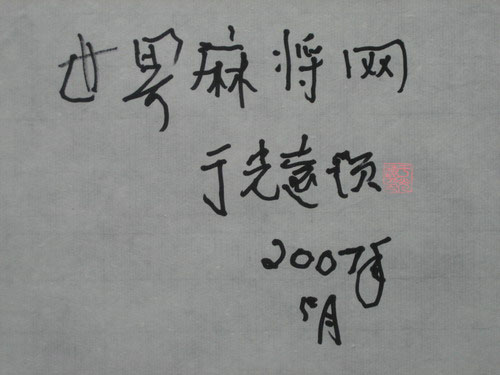 世界麻将网
于光遠
2007年
5月